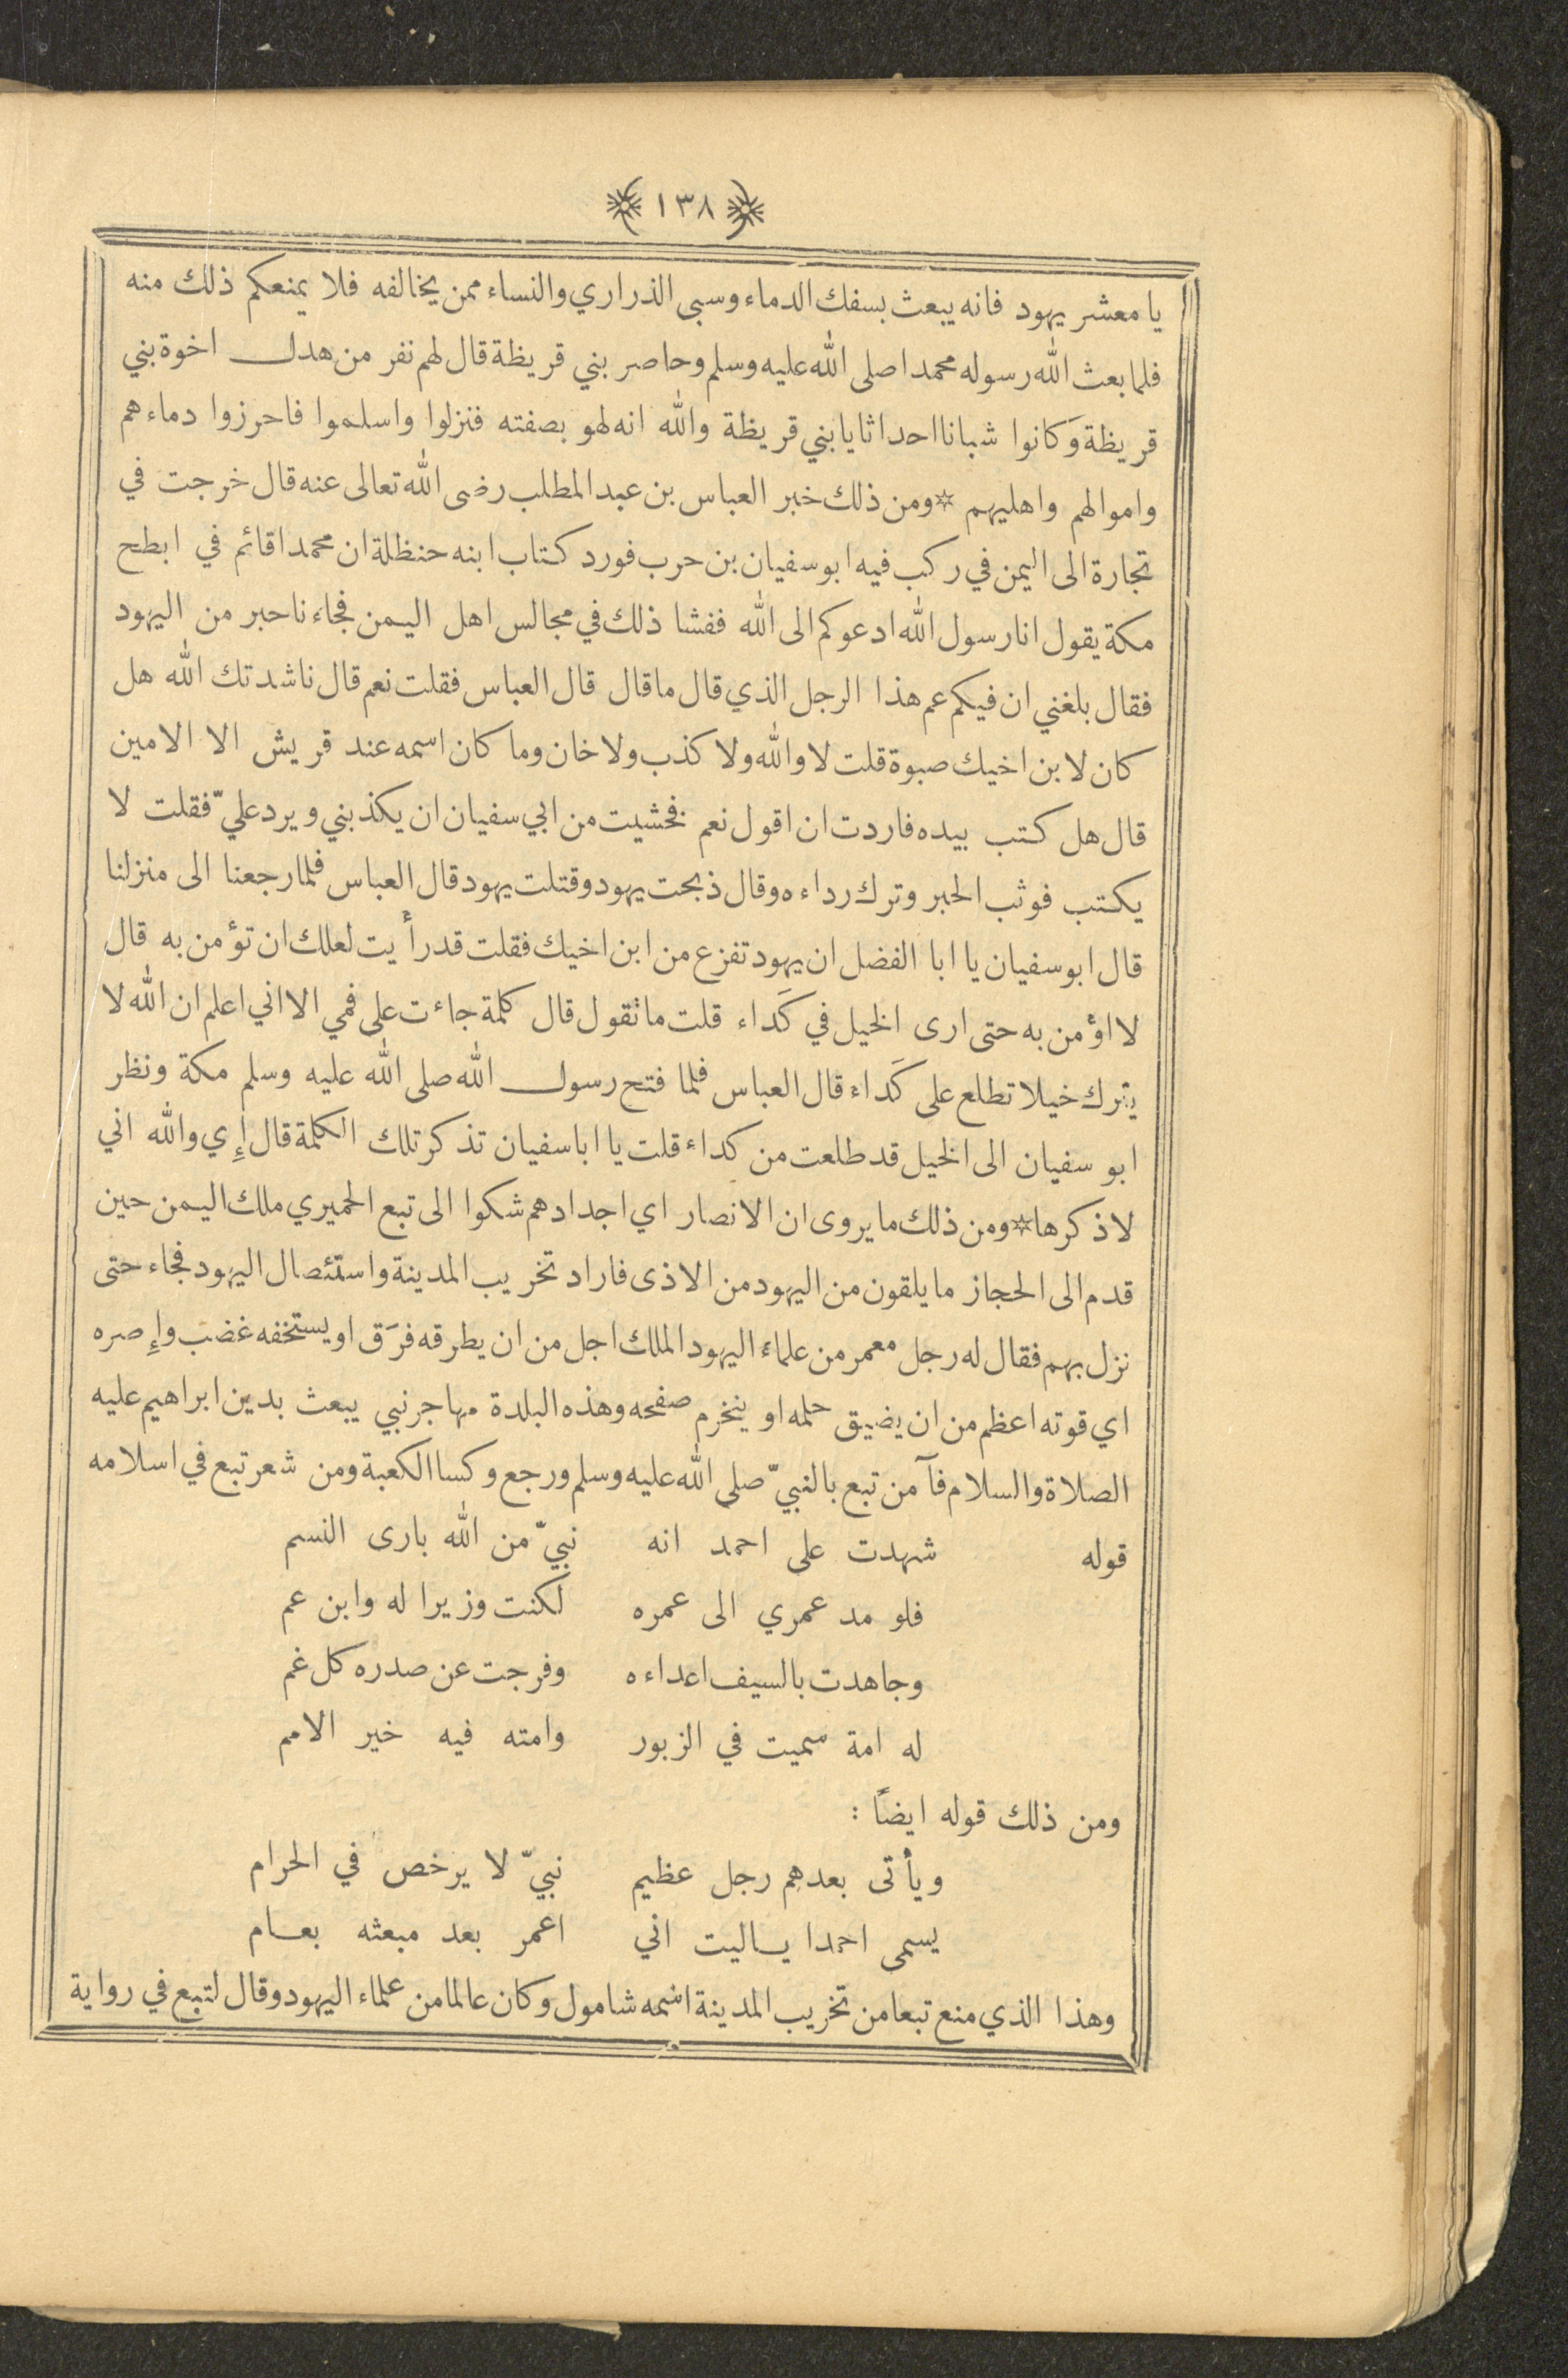 ١٣٨
يا معشر يهود فانه يبعث بسفك الدماء وسبي الذراري والنساء ممن يخالفه فلا يمنعكم ذلك منه
فلما بعث الله رسوله محمدا صلى الله عليه وسلم وحاصر بني قريظة قال لهم نفر من هدل اخوة بني
قريظة وكانوا شبانا احداثا يا بني قريظة والله انه لهو بصفته فنزلوا واسلموا فاحرزوا دماءهم
واموالهم واهليهم * ومن ذلك خبر العباس بن عبد المطلب رضى الله تعالى عنه قال خرجت في
تجارة الى اليمن في ركب فيه ابو سفيان بن حرب فورد كتاب ابنه حنظلة ان محمدا قائم في ابطح
مكة يقول انا رسول الله ادعوكم الى الله ففشا ذلك في مجالس اهل اليمن فجاءنا حبر من اليهود
فقال بلغني ان فيكم عم هذا الرجل الذي قال ما قال قال العباس فقلت نعم قال ناشدتك الله هل
كان لابن اخيك صبوة قلت لا والله ولا كذب ولا خان وما كان اسمه عند قريش الا الامين
قال هل كتب بيده فاردت ان اقول نعم فخشيت من ابي سفيان ان يكذبني ويرد عليّ فقلت لا
يكتب فوثب الحبر وترك رداءه وقال ذبحت يهود وقتلت يهود قال العباس فلما رجعنا الى منزلنا
قال ابو سفيان يا ابا الفضل ان يهود تفزع من ابن اخيك فقلت قد رأيت لعلك ان تؤمن به قال
لا اؤمن به حتى ارى الخيل في كَداء قلت ما تقول قال كلمة جاءت على فمي الا اني اعلم ان الله لا
يترك خيلا تطلع على كَداء قال العباس فلما فتح رسول الله صلى الله عليه وسلم مكة ونظر
ابو سفيان الى الخيل قد طلعت من كداء قلت يا ابا سفيان تذكر تلك الكلمة قال إِي والله اني
لاذكرها * ومن ذلك ما يروى ان الانصار اي اجدادهم شكوا الى تبع الحميري ملك اليمن حين
قدم الى الحجاز ما يلقون من اليهود من الاذى فاراد تخريب المدينة واستئصال اليهود فجاء حتى
نزل بهم فقال له رجل معمر من علماء اليهود الملك اجل من ان يطرقه فرَق او يستخفه غضب وإِصره
اي قوته اعظم من ان يضيق حلمه او ينخرم صفحه وهذه البلدة مهاجر نبي يبعث بدين ابراهيم عليه
الصلاة والسلام فآمن تبع بالنبيّ صلى الله عليه وسلم ورجع وكسا الكعبة ومن شعر تبع في اسلامه
قوله شهدت على احمد انه نبيّ من الله بارى النسم
فلو مد عمري الى عمره لكنت وزيرا له وابن عم
وجاهدت بالسيف اعداءه وفرجت عن صدره كل غم
له امة سميت في الزبور وامته فيه خير الامم
ومن ذلك قوله ايضاً :
ويأتى بعدهم رجل عظيم نبيّ لا يرخص في الحرام
يسمى احمدا ياليت اني اعمر بعد مبعثه بعام
وهذا الذي منع تبعا من تخريب المدينة اسمه شامول وكان عالما من علماء اليهود وقال لتبع في رواية